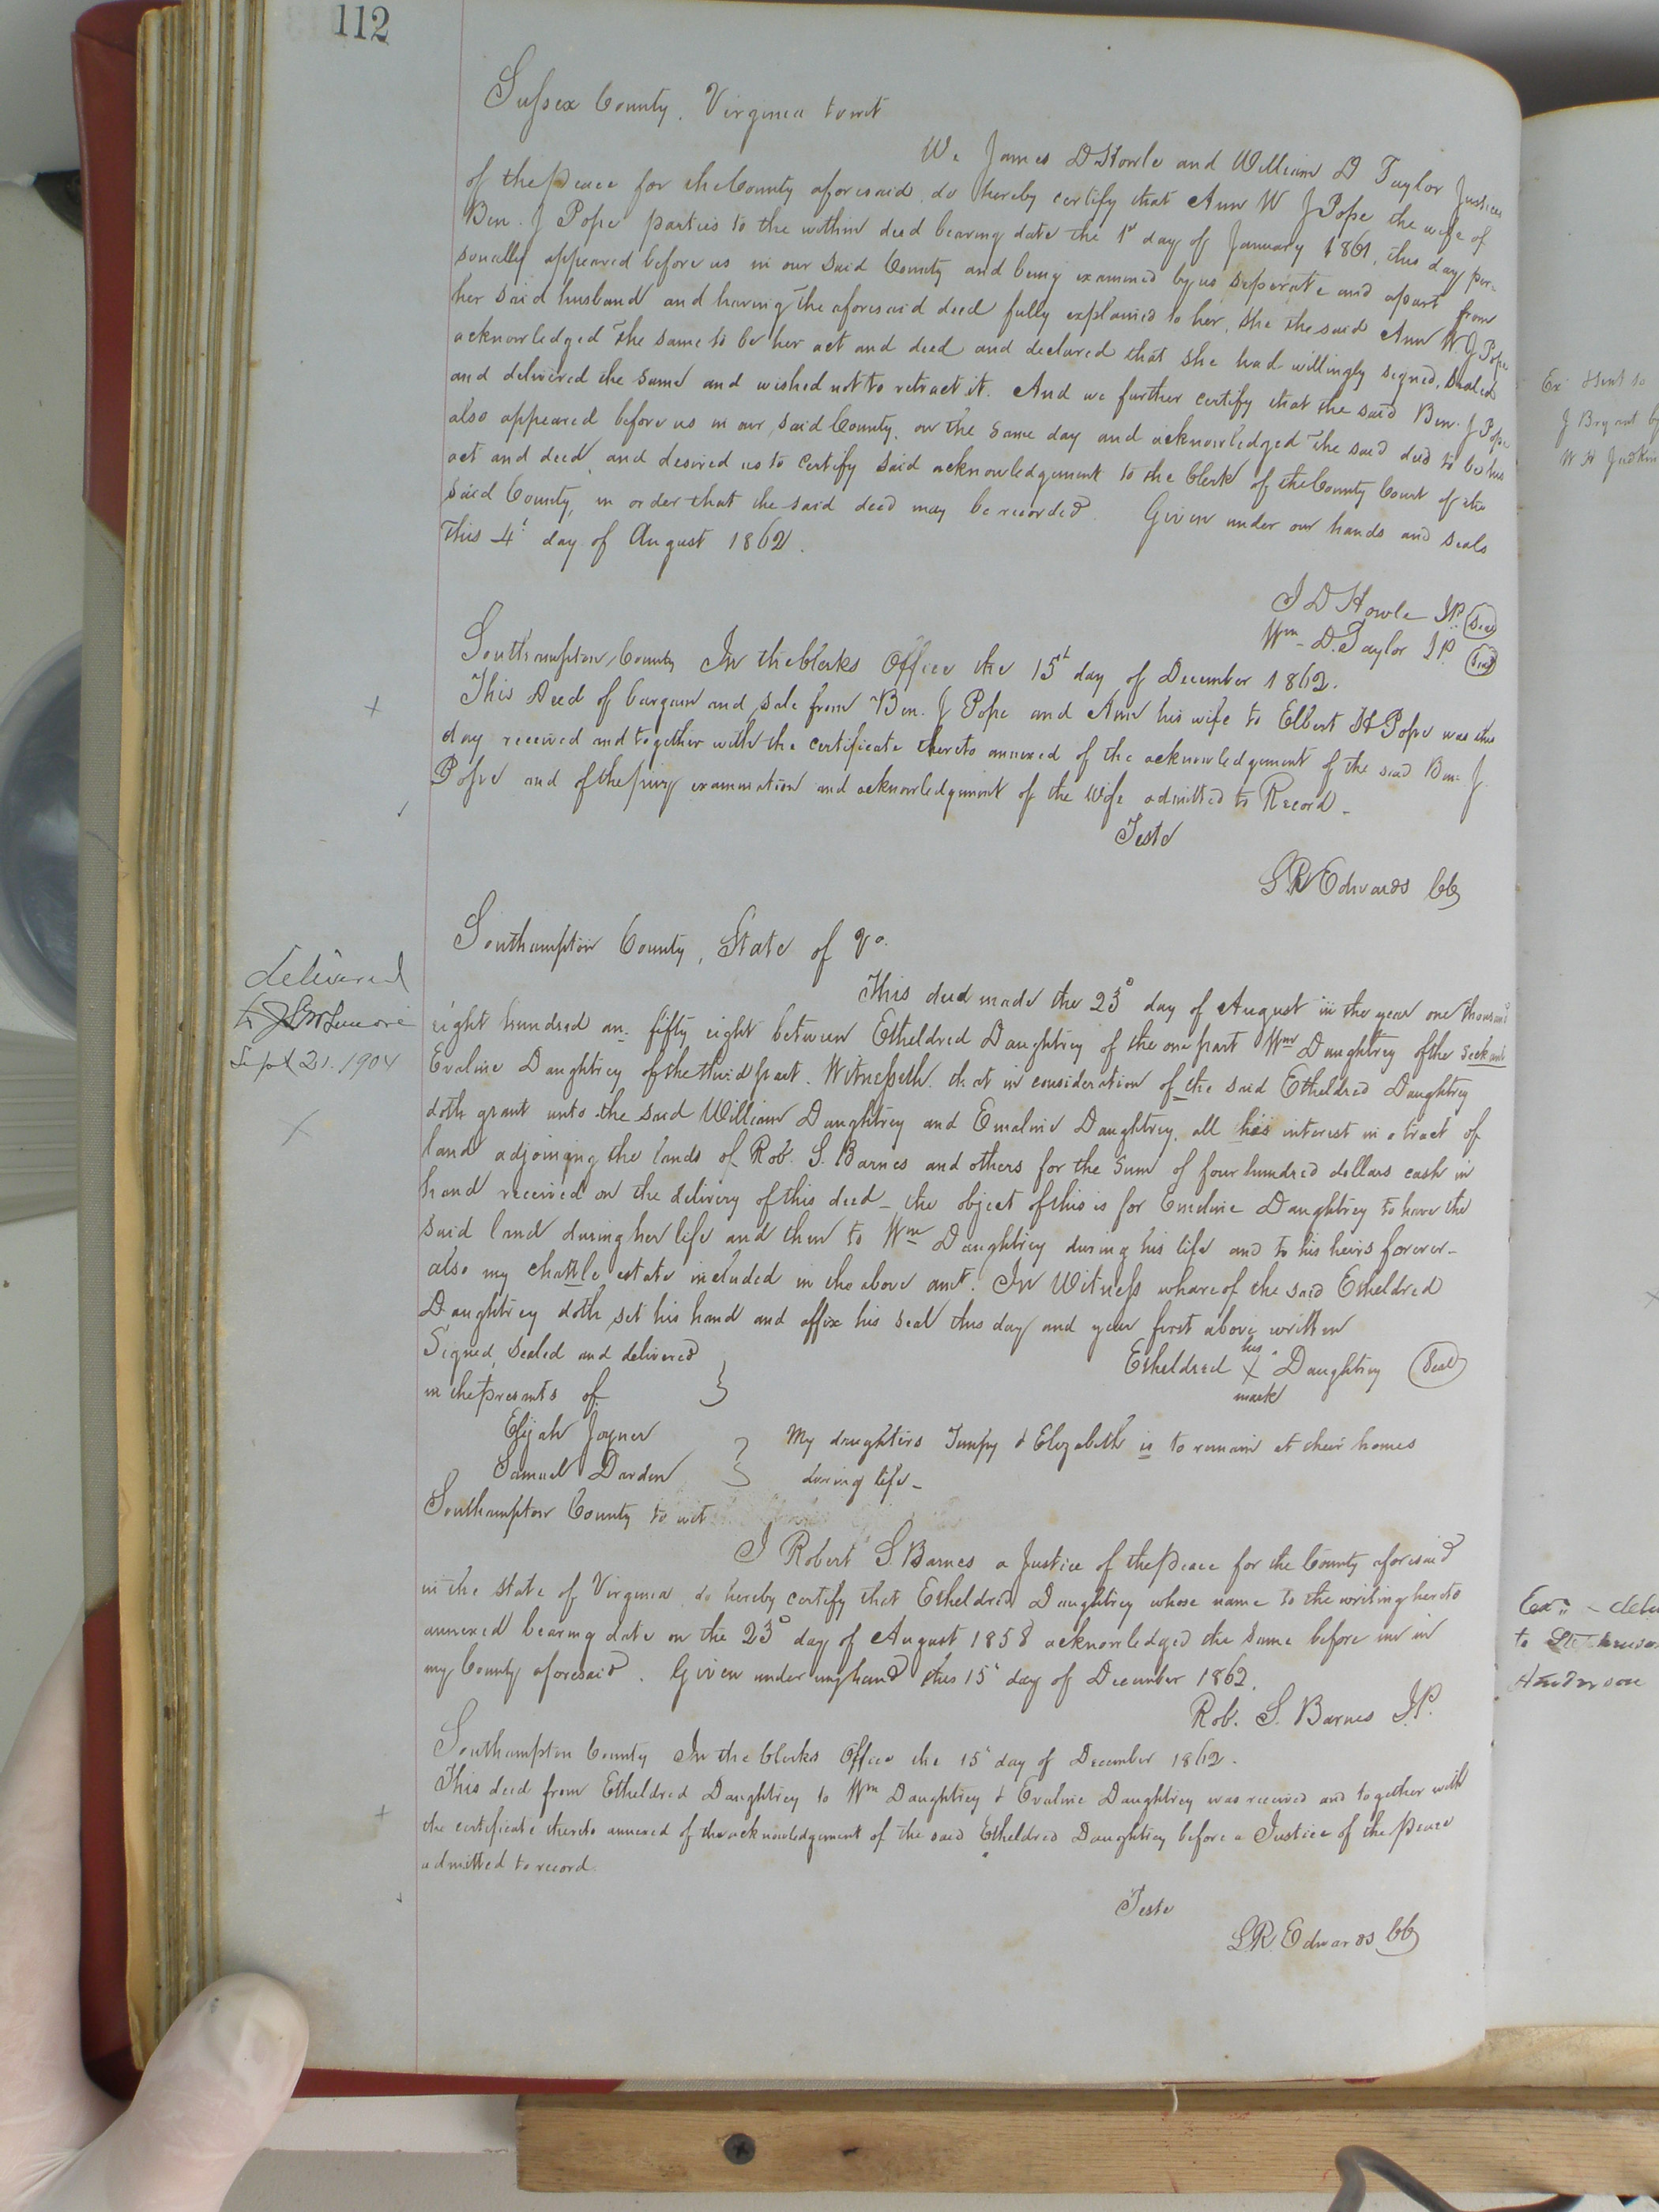 112
Sussex County, Virginia towit
We James D Howle and William D Taylor Justices
of the peace for the County aforesaid, do hereby certify that Ann W J Pope the wife of
Ben. J Pope parties to the within deed bearing date the 1st day of January 1861, this day per-
sonally appeared before us in our said County and being examined by us seperate and apart from
her said husband and having the aforesaid deed fully explained to her, she the said Ann W. J Pope
acknowledged the same to be her act and deed and declared that she had willingly signed, sealed
and delivered the same and wished not to retract it. And we further certify that the said Ben. J Pope
also appeared before us in our said County, on the same day and acknowledged the said deed to be his
act and deed, and desired us to certify said acknowledgement to the Clerk of the County Court of the
said County, in order that the said deed may be recorded. Given under our hands and seals
This 4th day of August 1862.
J D Howle JP. Seal
Wm D. Taylor JP. Seal
Southampton County In the Clerks Office the 15th day of December 1862.
This Deed of bargain and sale from Ben. J Pope and Ann his wife to Elbert H Pope was this
day received and together with the certificate thereto annexed of the acknowledgement of the said Ben. J.
Pope and of the privy examination and acknowledgement of the wife admitted to Record.
Teste
LR Edwards CC
Southampton County, State of Va.
This deed made the 23d day of August in the year one thousand
eight hundred an- fifty eight between Etheldred Daughtrey of the one part Wm Daughtrey of the seck and
Evaline Daughtrey of the third part. Witnesseth. that in consideration of the said Etheldred Daughtrey
doth grant unto the said William Daughtrey and Emaline Daughtrey, all his interest in a tract of
land adjoinging the lands of Rob. S. Barnes and others for the sum of four hundred dollars cash in
hand received on the delivery of this deed - the object of this is for Emeline Daughtrey to have the
said land during her life and then to Wm Daughtrey during his life and to his heirs forever-
also my chattle estate included in the above amt. In Witness whareof the said Etheldred
Daughtrey doth set his hand and affix his seal this day and year first above written
Signed, Sealed and delivered
in the presents of
his
Etheldred X Daughtrey Seal
mark
Elijah Joyner
Samuel Darden
My daughters Tempy & Elizabeth is to remain at their homes
during life-
Southampton County to wit
I Robert S. Barnes a Justice of the peace for the County aforesaid
in the State of Virginia, do hereby certify that Etheldred Daughtrey whose name to the writing hereto
annexed bearing date on the 23d day of August 1858 acknowledged the same before me in
my County aforesaid. Given under my hand this 15th day of December 1862.
Rob. S. Barnes J.P.
Southampton County In the Clerks Office the 15th day of December 1862.
This deed from Etheldred Daughtrey to Wm Daughtrey & Evaline Daughtrey was received and together with
the certificate thereto annexed of the acknowledgement of the said Etheldred Daughtrey before a Justice of the peace
admitted to record.
Teste
LR. Edwards CC
delivered
to
Sept 21. 1904
Ex. sent to
J Bryant by
W H
to